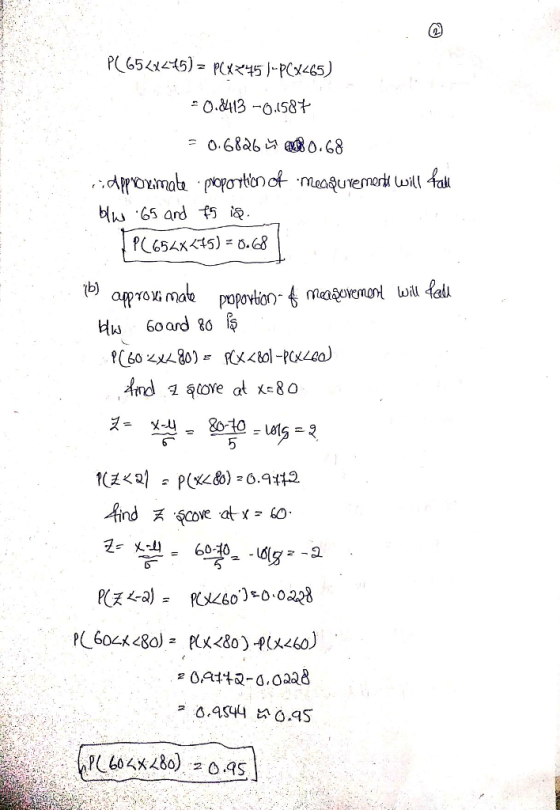 ②
P(65<x<75) = P(x<75)-P(x<65)
= 0.8413 - 0.1587
= 0.6826 ≈ 0.68
∴ approximate proportion of measurements will fall
b/w 65 and 75 is.
P(65<x<75) = 0.68
(b) approximate proportion of measurement will fall
b/w 60 and 80 is
P(60<x<80) = P(x<80)-P(x<60)
find z score at x=80
Z = x-μ/σ = 80-70/5 = 10/5 = 2
P(Z<2) = P(x<80) = 0.9772
find z score at x = 60.
Z = x-μ/σ = 60-70/5 = -10/5 = -2
P(Z<-2) = P(x<60) = 0.0228
P(60<x<80) = P(x<80)-P(x<60)
= 0.9772-0.0228
= 0.9544 ≈ 0.95
P(60<x<80) = 0.95